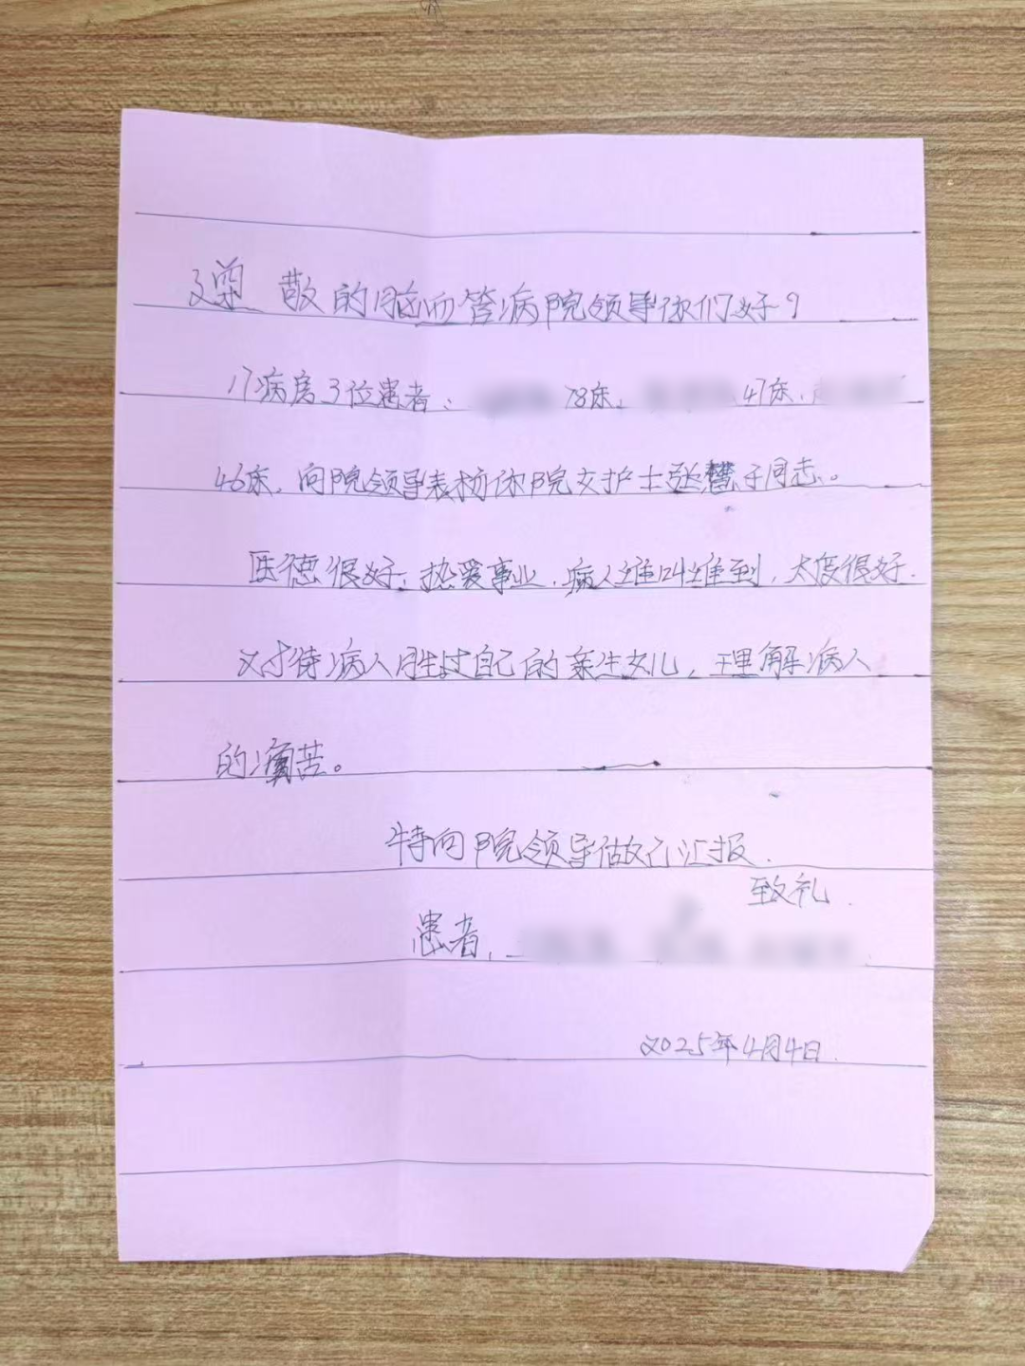 尊敬的脑血管病院领导你们好?
17病房3位患者: 78床、 47床、
46床、向院领导表扬你院女护士张慧子同志。
医德很好、热爱事业、病人谁叫谁到,太度很好.
对待病人胜过自己的亲生女儿,理解病人
的痛苦。
特向院领导做已汇报.
致礼.
患者,
2025年4月4日.